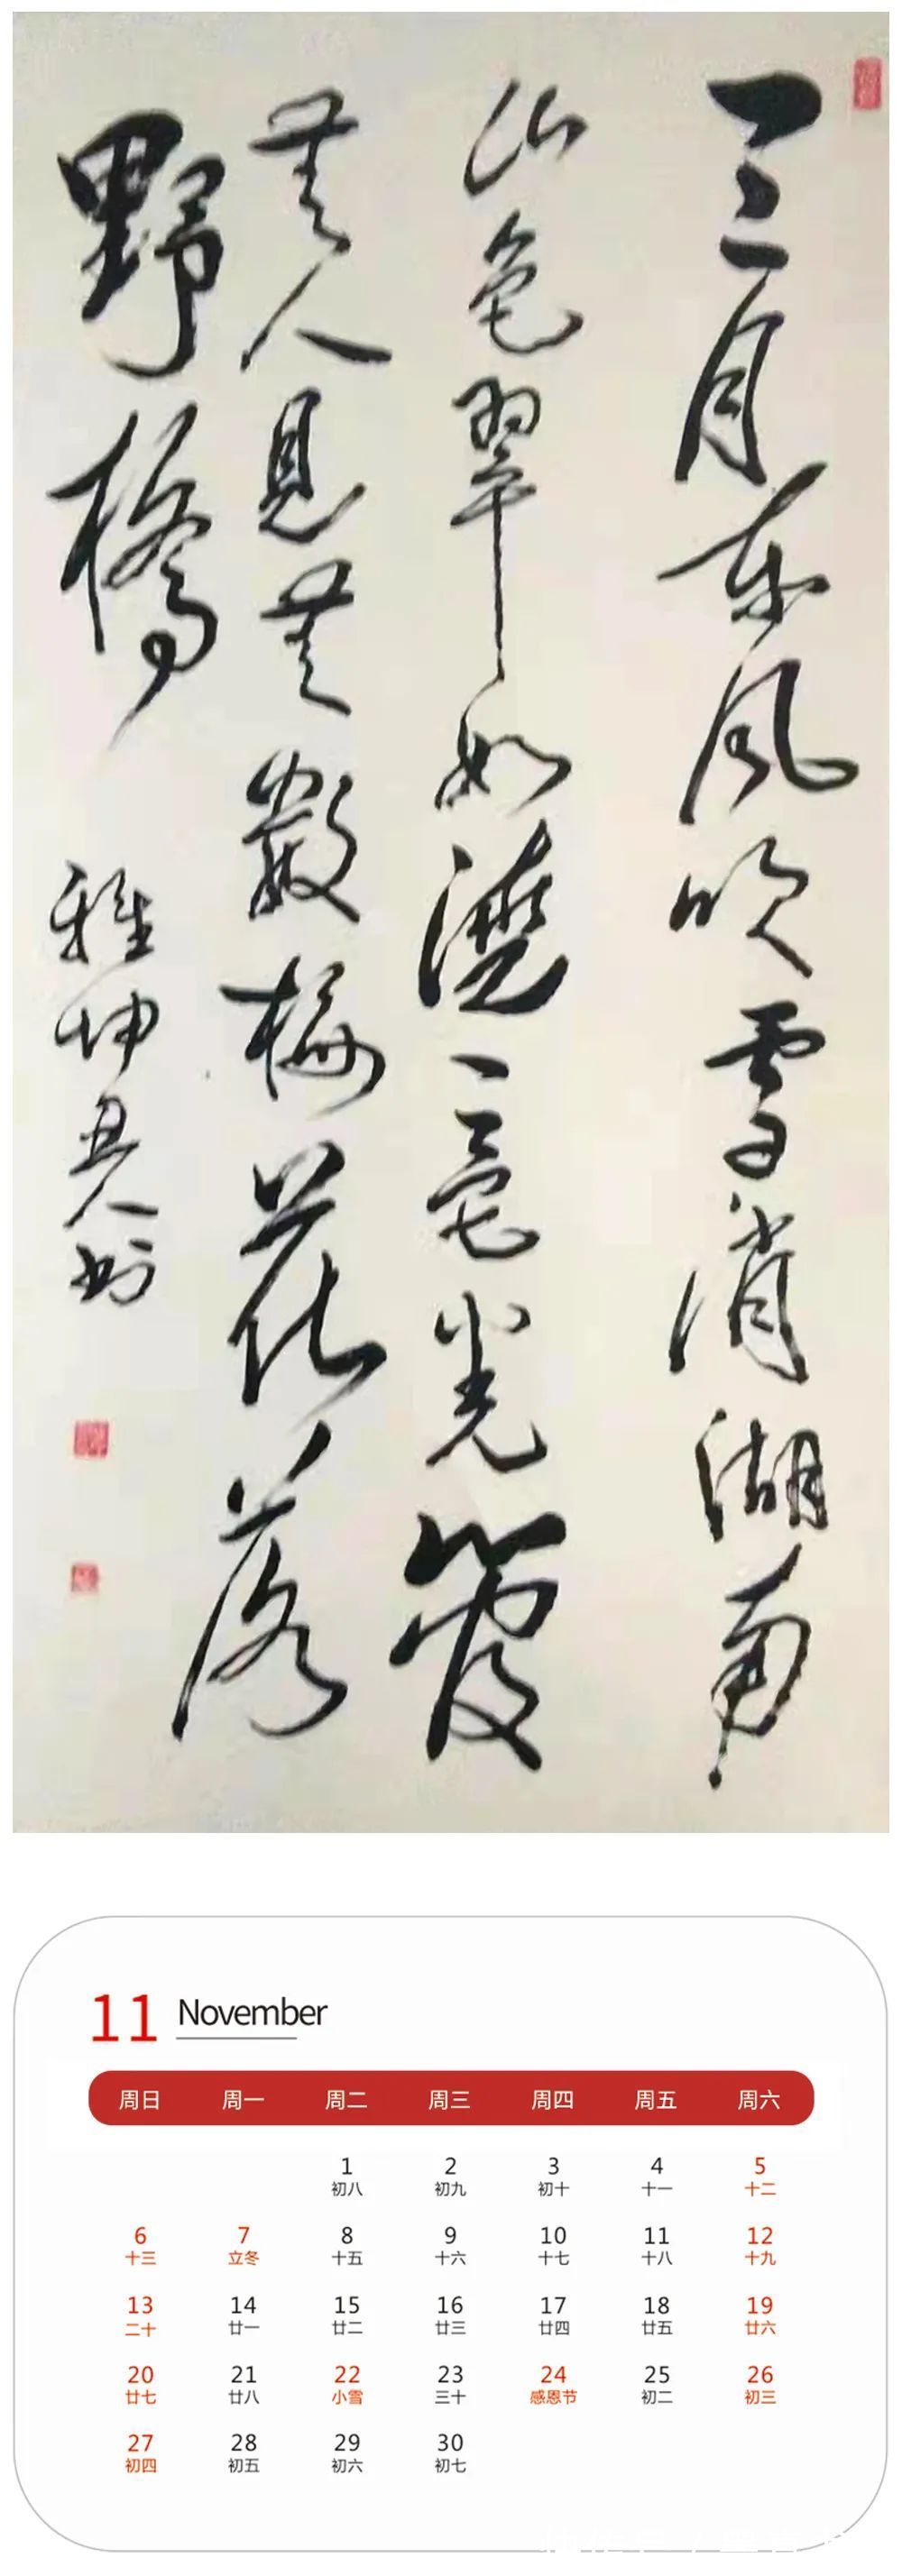 三月東風吹雪消湖南
山色翠如澆一聲羌管
無人見無數梅花落
野橋
雅坤
11 November
周日 周一 周二 周三 周四 周五 周六
1 2 3 4 5
初八 初九 初十 十一 十二
6 7 8 9 10 11 12
十三 立冬 十五 十六 十七 十八 十九
13 14 15 16 17 18 19
二十 廿一 廿二 廿三 廿四 廿五 廿六
20 21 22 23 24 25 26
廿七 廿八 小雪 三十 感恩节 初二 初三
27 28 29 30
初四 初五 初六 初七